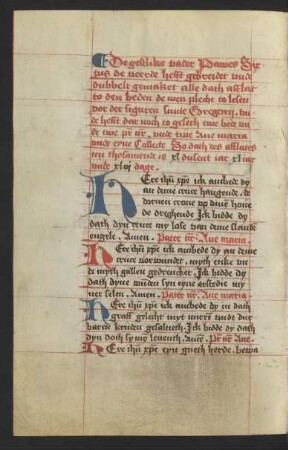 De gestlike vader Pawes Six
tus de veerde hefft gebreidet vnde
dubbelt gemaket alle dath afflat
to den beden de men plecht to lesen
vor der figuren sunte Gregorij, vn
de hefft dar noch to geleth twe bede vn
de twe pr nr. vnde twe Aue maria
vnde eyne Collecte So dath des afflates
nu thosamende is xl dusent iar xl iar
vnde xl dage.
Here ihu xpe ick anbede dy
an deme cruce hangende, de
dornen crone vp dine houe
de dreghende Ick bidde dy
dath dyn cruce my lose van deme slande
engele. Amen. Pater nr. Aue maria.
Here ihu xpe ick anbede dy an deme
cruce vorwundet, myth etike vn
de myth gallen gedrencket, Ick bidde dy
dath dyne wunden syn eyne arstedie my
ner selen. Amen. Pater nr. Aue maria
Here ihu xpe ick anbede dy in dath
graff gelecht myt mirre vnde dur
baren kruden gesalueth. Ick bidde dy dath
dyn doth sy myn leuenth. Ame. Pr nr Aue.
Here ihu xpe eyn guth herde. bewa